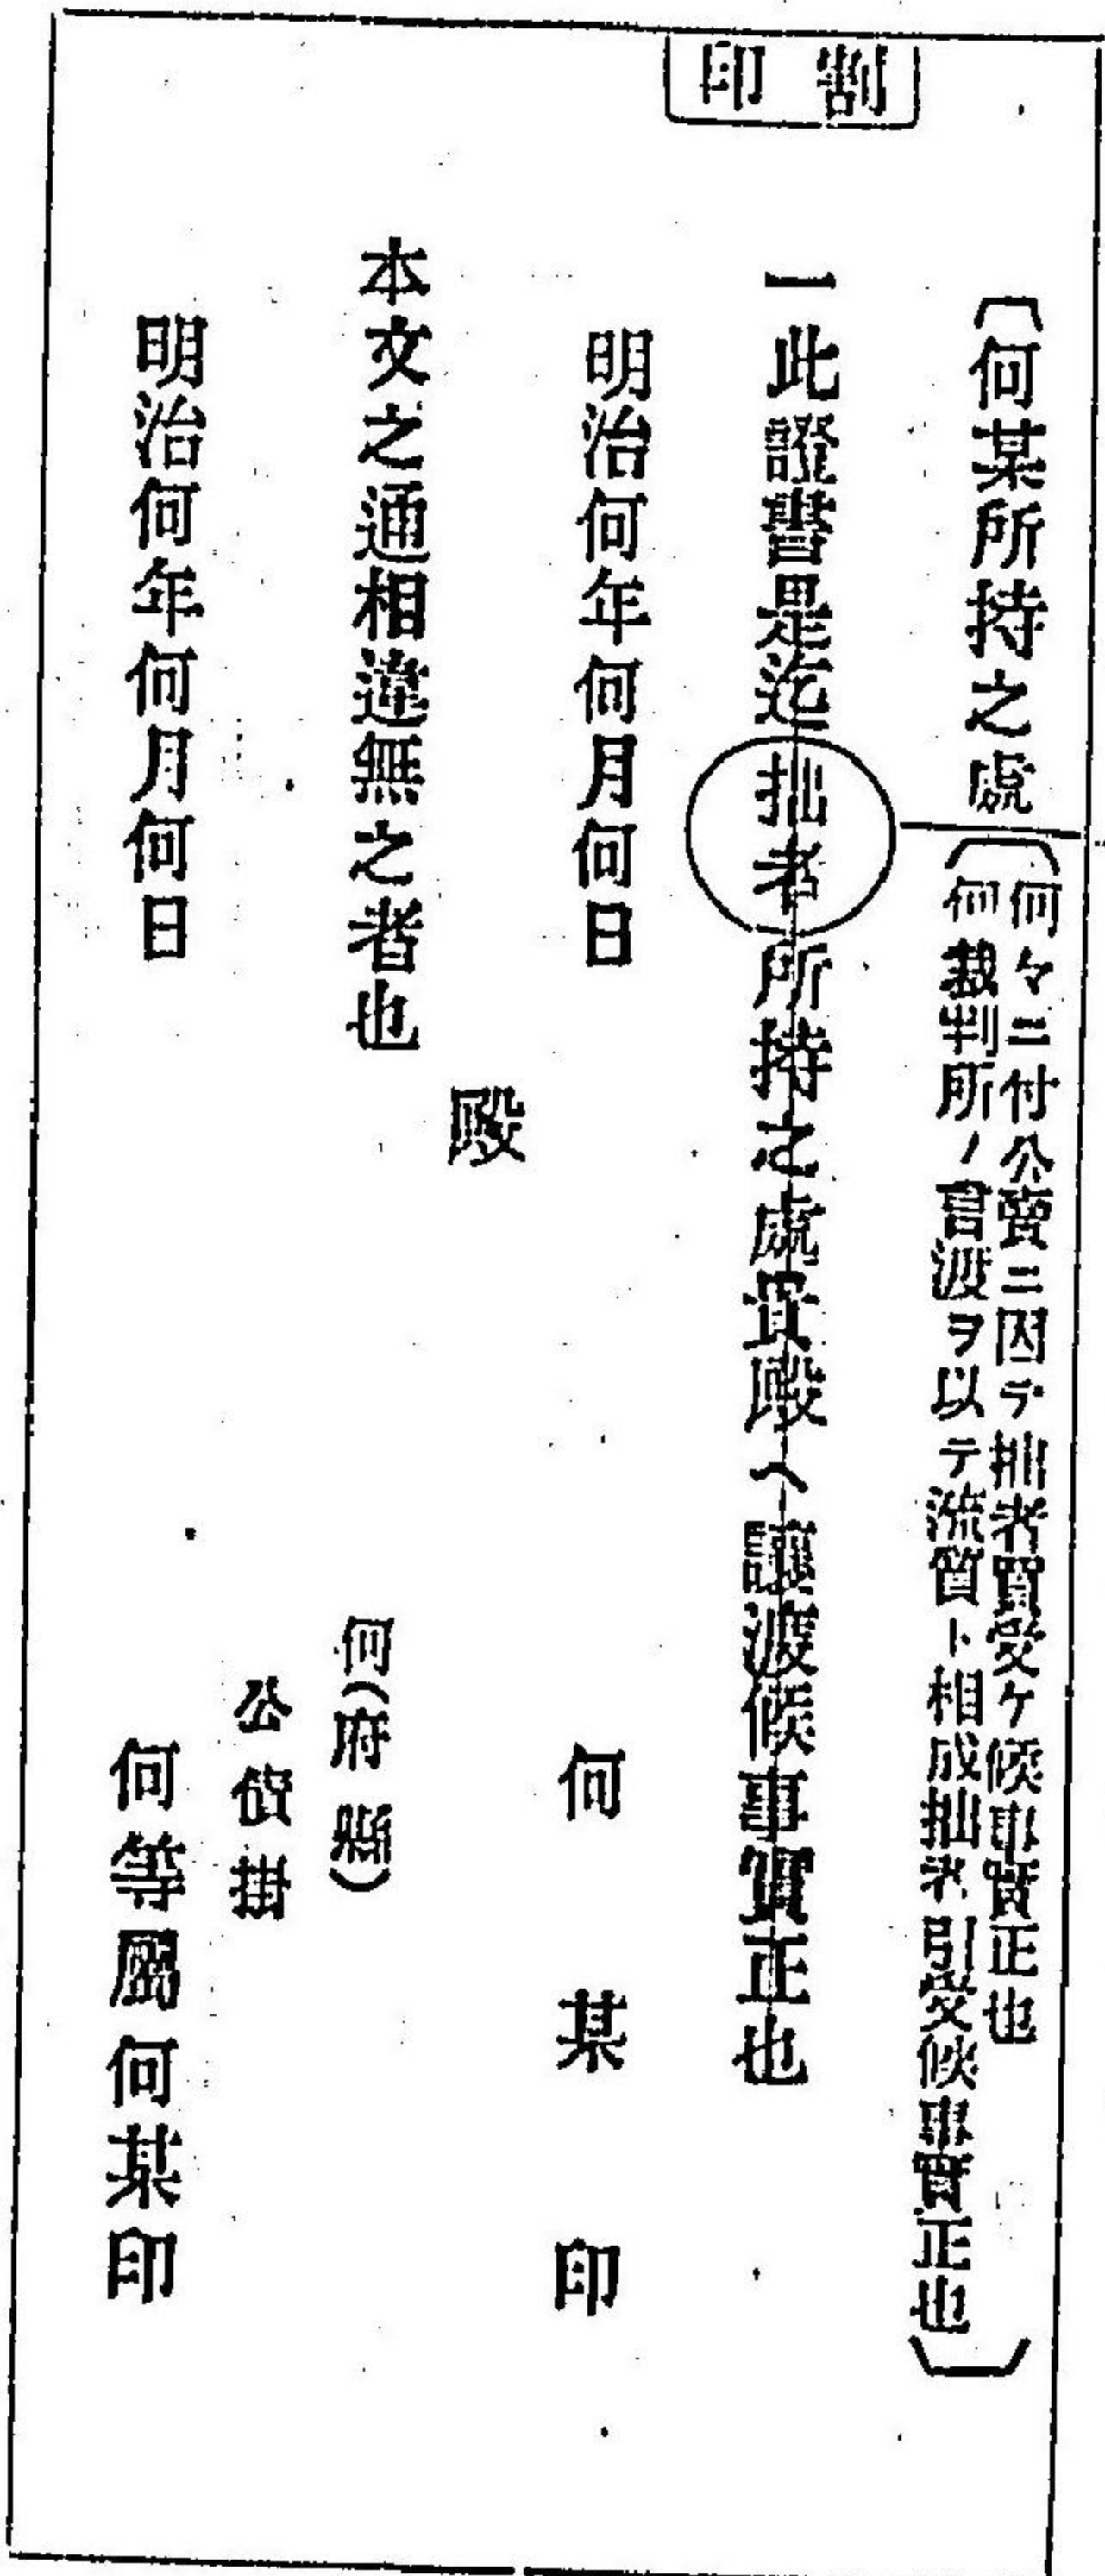 割印
〔何某所持之處
〔何々ニ付公賣ニ因テ拙者買受ケ候事實正也
何裁判所ノ言渡ヲ以テ流質ト相成拙者引受候事實正也〕
一此證書是迄拙者所持之處貴殿ヘ讓渡候事實正也
明治何年何月何日
何某印
殿
本文之通相違無之者也
何(府縣)
公債掛
明治何年何月何日
何等屬何某印